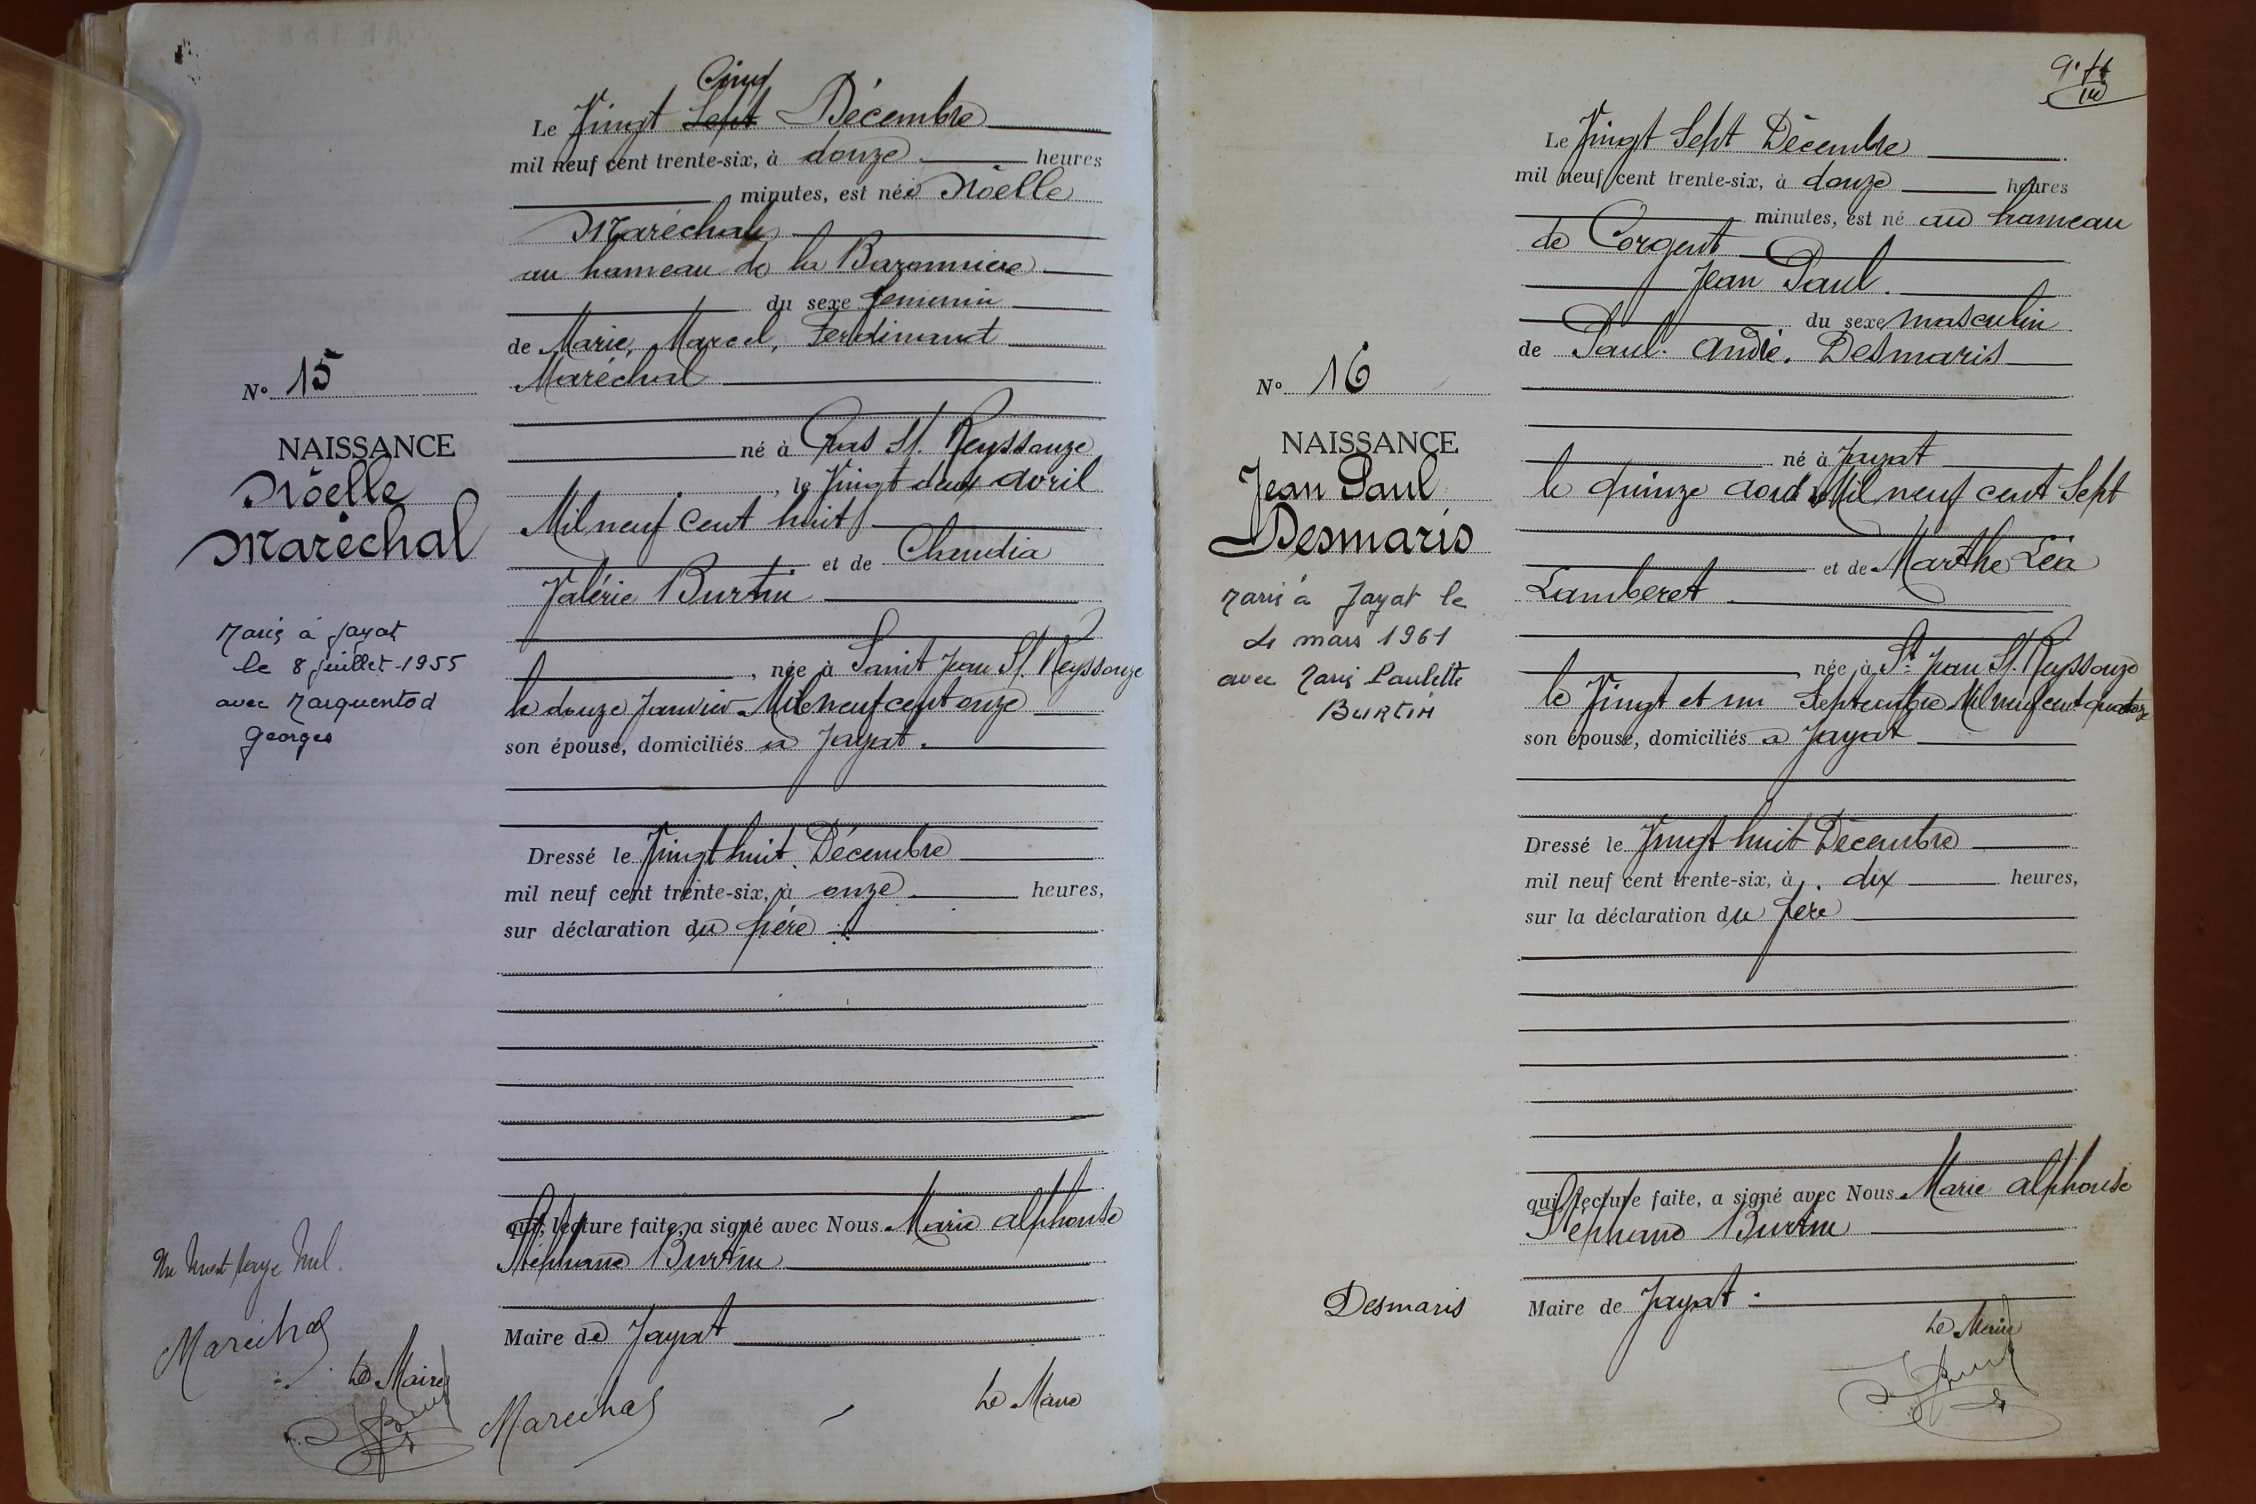 Cinq
Le Vingt Sept Décembre
mil neuf cent trente-six, à douze heures
minutes, est née Nöelle
Maréchal
au hameau de la Bazonniere
du sexe feminin
de Marie, Marcel, Ferdinand
Maréchal
né à Cras St. Reyssouze
, le Vingt deux avril
Mil neuf cent huit
et de Claudia
Valérie Burtin
, née à Saint Jean St. Reyssouze
le douze Janvier Mil neuf cent onze
son épouse, domiciliés à Jayat.
Dressé le Vingt huit Décembre
mil neuf cent trente-six, à onze heures,
sur déclaration du père
qui, lecture faite, a signé avec Nous Marie alphonse
Stéphane Burtin
Maire de Jayat
Le Maire
Marechal
N° 15
NAISSANCE
Nöelle
Maréchal
Marié à Jayat
le 8 juillet 1955
avec Marquentod
Georges
Un mot rayé nul.
Marechal
Le Maire
Le Vingt Sept Décembre
mil neuf cent trente-six, à douze heures
minutes, est né au hameau
de Corgent
Jean Paul.
du sexe masculin
de Paul. André. Desmaris
né à Jayat
le quinze aout Mil neuf cent Sept
et de Marthe Léa
Lamberet
, née à St Jean St. Reyssouze
le Vingt et un Septembre Mil neuf cent quatorze
son épouse, domiciliés à Jayat
Dressé le Vingt huit Décembre
mil neuf cent trente-six, à dix heures,
sur la déclaration du père
qui, lecture faite, a signé avec Nous Marie alphonse
Stéphane Burtin
Maire de Jayat.
Le Maire
N° 16
NAISSANCE
Jean Paul
Desmaris
Marié à Jayat le
4 mars 1961
avec Marie Paulette
BURTIN
Desmaris